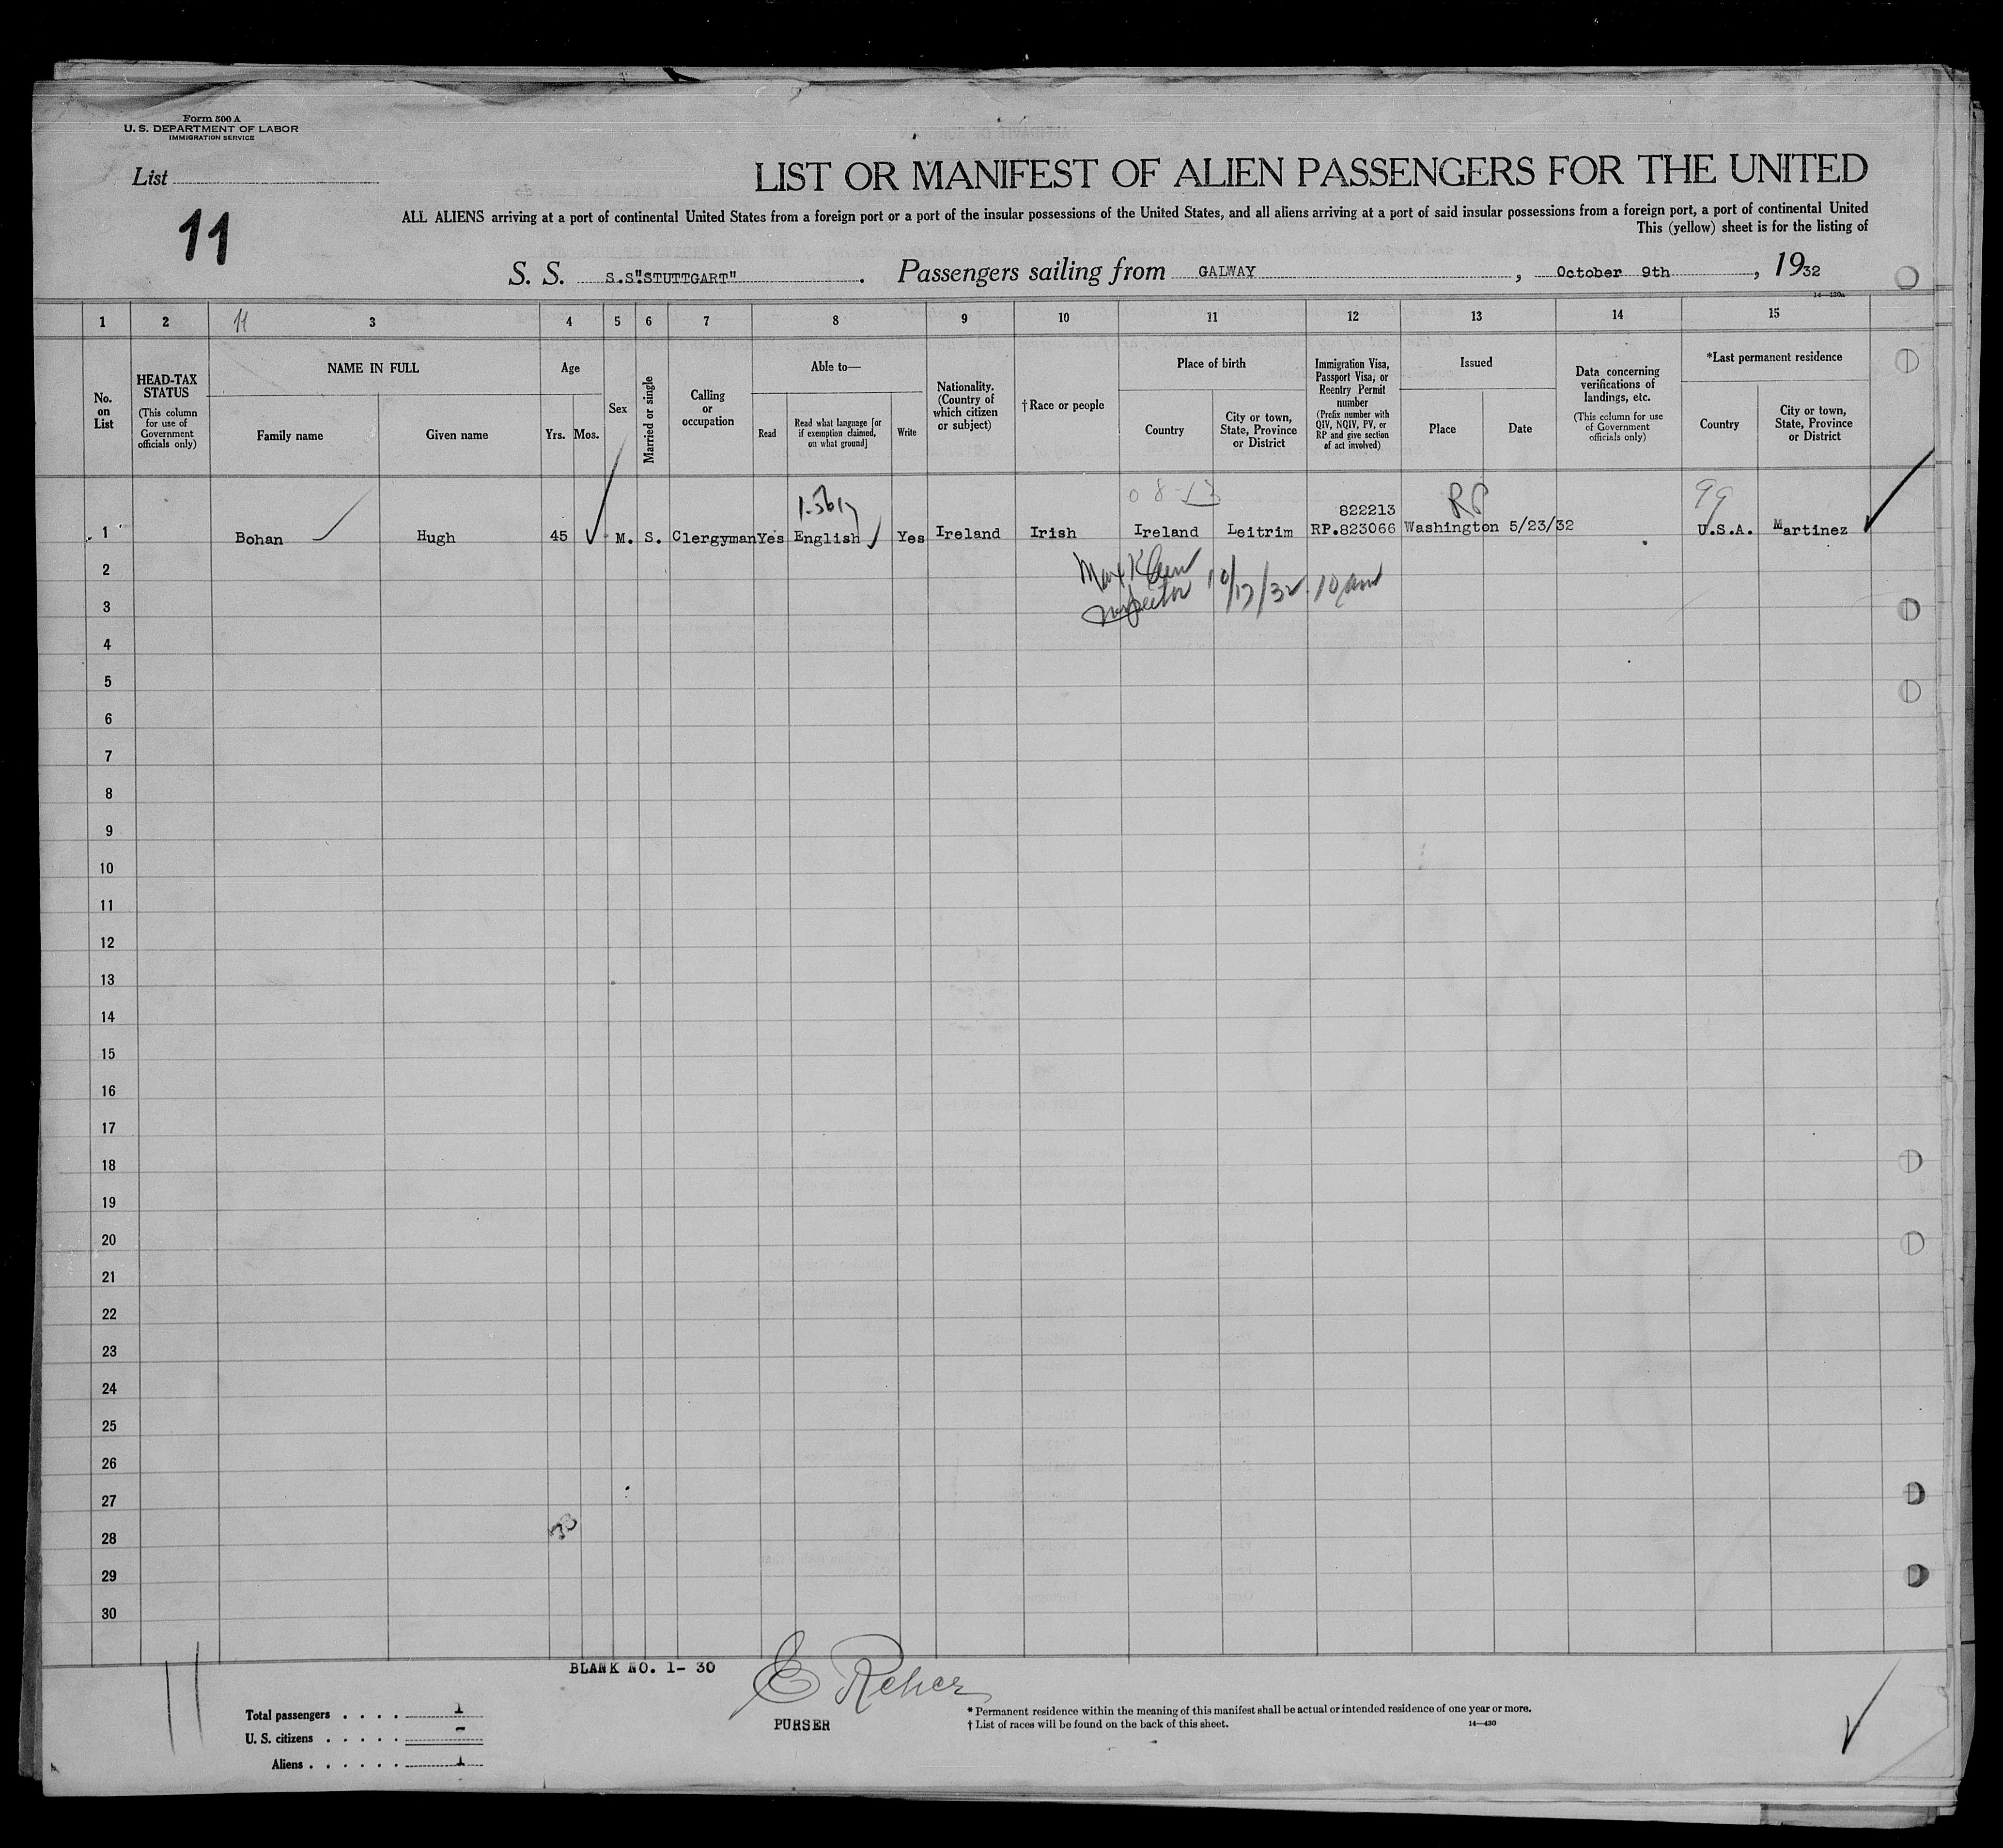 Form 500 A
U. S. DEPARTMENT OF LABOR
IMMIGRATION SERVICE
List
11
LIST OR MANIFEST OF ALIEN PASSENGERS FOR THE UNITED
ALL ALIENS arriving at a port of continental United States from a foreign port or a port of the insular possessions of the United States, and all aliens arriving at a port of said insular possessions from a foreign port, a port of continental United
This (yellow) sheet is for the listing of
S. S. S.S."STUTTGART". Passengers sailing from GALWAY, October 9th, 1932
14—430a
1 2 11 3 4 5 6 7 8 9 10 11 12 13 14 15
No. on List
HEAD-TAX STATUS
(This column for use of Government officials only)
NAME IN FULL
Family name
Given name
Age
Yrs. Mos.
Sex
Married or single
Calling or occupation
Able to—
Read
Read what language [or if exemption claimed, on what ground]
Write
Nationality. (Country of which citizen or subject)
†Race or people
Place of birth
Country
City or town, State, Province or District
Immigration Visa, Passport Visa, or Reentry Permit number
(Prefix number with QIV, NQIV, PV, or RP and give section of act involved)
Issued
Place
Date
Data concerning verifications of landings, etc.
(This column for use of Government officials only)
*Last permanent residence
Country
City or town, State, Province or District
RP 99
822213
1 Bohan Hugh 45 M. S. Clergyman Yes English Yes Ireland Irish Ireland Leitrim RP.823066 Washington 5/23/32 U.S.A. Martinez
2
Inspector 10/17/32 10 am
3
4
5
6
7
8
9
10
11
12
13
14
15
16
17
18
19
20
21
22
23
24
25
26
27
28
29
30
BLANK NO. 1- 30
E Reher
PURSER
11
Total passengers . . . . 1
U. S. citizens . . . . . -
Aliens . . . . . . 1
* Permanent residence within the meaning of this manifest shall be actual or intended residence of one year or more.
† List of races will be found on the back of this sheet. 14—430